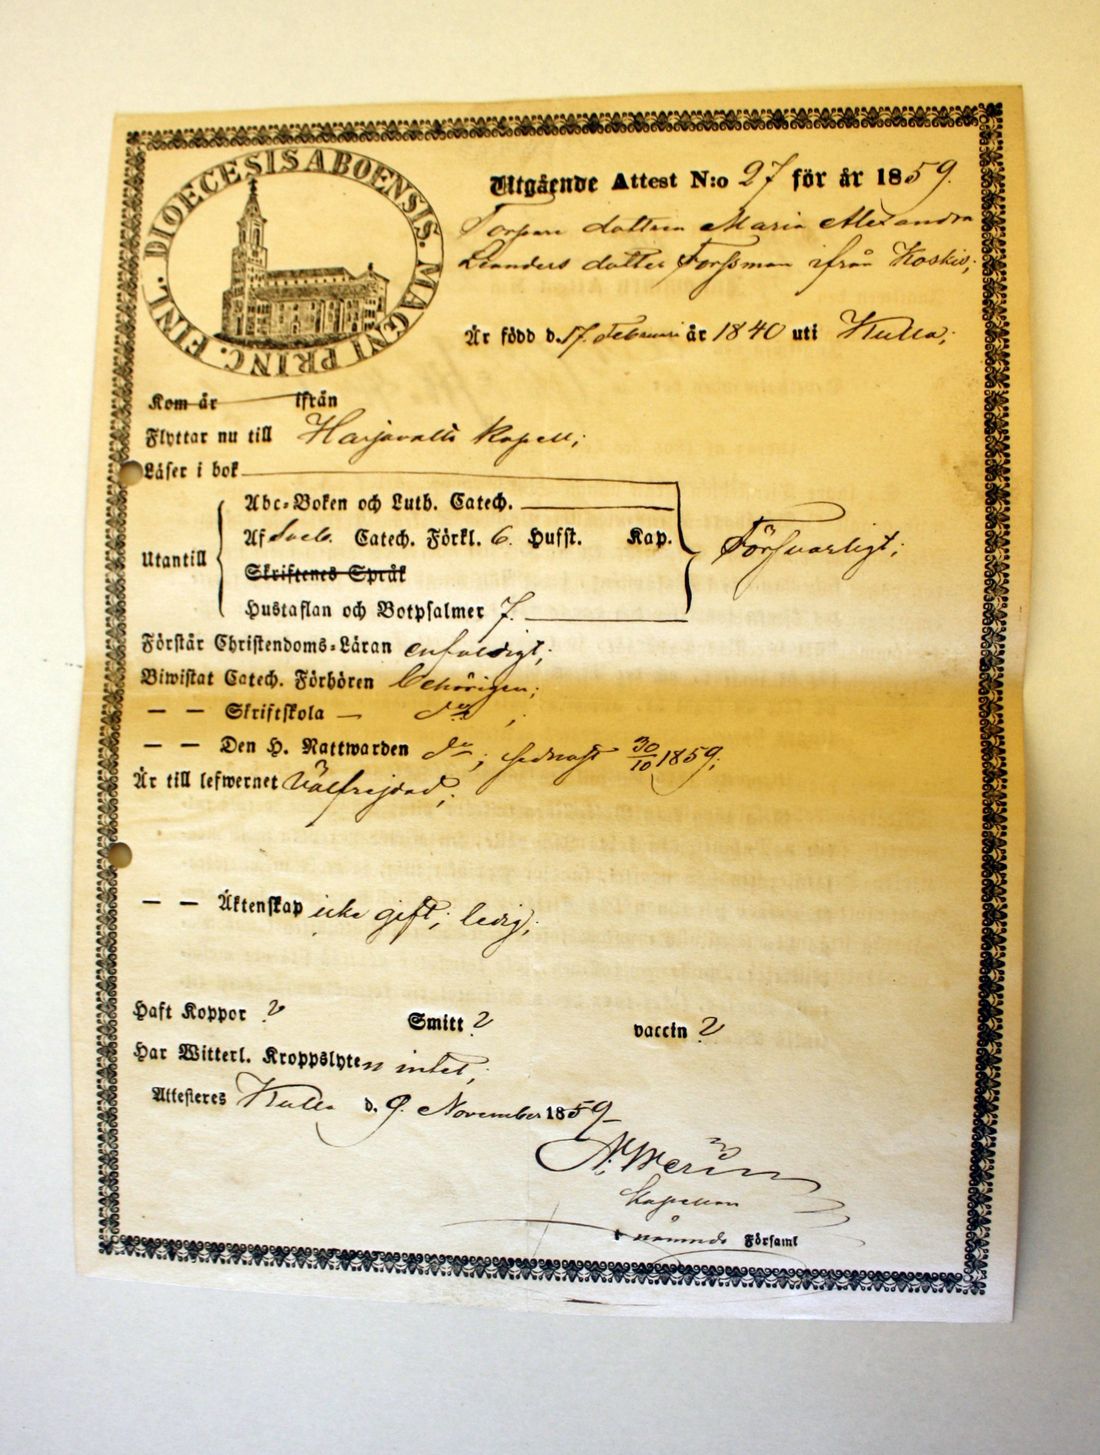 DIOECESIS ABOENSIS. MAGNI PRINC. FINL.
Utgående Attest N:o 27 för år 1859.
Torpare dottren Maria Alexandra
Leanders dotter Forssman ifrån Koskis;
Är född d. 17. Februari år 1840 uti Kulla;
Kom år ifrån
Flyttar nu till Harjavalta Kapell;
Läser i bok
Utantill
Abc-Boken och Luth. Catech.
Af Sveb. Catech. Förkl. 6. Hufst. Kap.
Skriftenes Språk
Hustaflan och Botpsalmer 7.
Försvarligt;
Förstår Christendoms-Läran enfaldigt;
Biwistat Catech. Förhören behörigen;
— — Skriftskola — do;
— — Den H. Nattwarden do; sednast 30/10 1859;
Är till lefwernet Välfrejdad;
— — Äktenskap icke gift; ledig;
Haft Koppor ? Smitt ? vaccin ?
Har Witterl. Kroppslyten intet;
Attesteres Kulla d. 9. November 1859
Kapellan
nämnde Församl